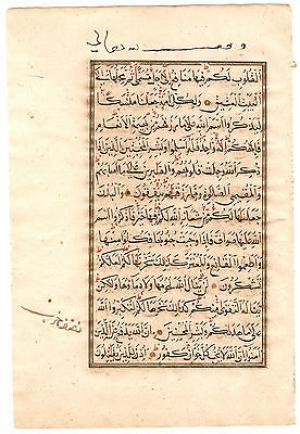 وقف لله تعالى
القلوب لكم فيها منافع إلى أجل مسمى ثم محلها إلى
البيت العتيق ولكل أمة جعلنا منسكا
ليذكروا اسم الله على ما رزقهم من بهيمة الأنعام
فإلهكم إله واحد فله أسلموا وبشر المخبتين الذين إذا
ذكر الله وجلت قلوبهم والصابرين على ما أصابهم
والمقيمي الصلوة ومما رزقناهم ينفقون والبدن
جعلناها لكم من شعائر الله لكم فيها خير فاذكروا اسم
الله عليها صواف فإذا وجبت جنوبها فكلوا منها
وأطعموا القانع والمعتر كذلك سخرناها لكم لعلكم
تشكرون لن ينال الله لحومها ولا دماؤها ولكن
يناله التقوى منكم كذلك سخرها لكم لتكبروا الله
على ما هداكم وبشر المحسنين إن الله يدافع عن الذين
آمنوا إن الله لا يحب كل خوان كفور أذن للذين يقاتلون
نصف حزب